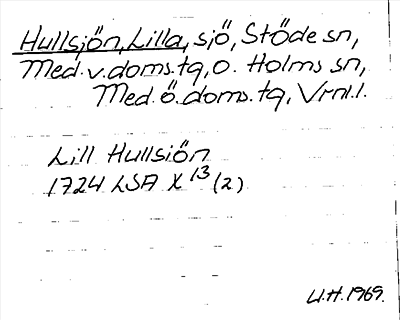 Hullsjön, Lilla, sjö, Stöde sn,
Med. v. doms. tg, o. Holms sn,
Med. ö. doms. tg, Vrnl. l.
Lill Hullsiön
1724 LSA X 13 (2)
U.H. 1969.